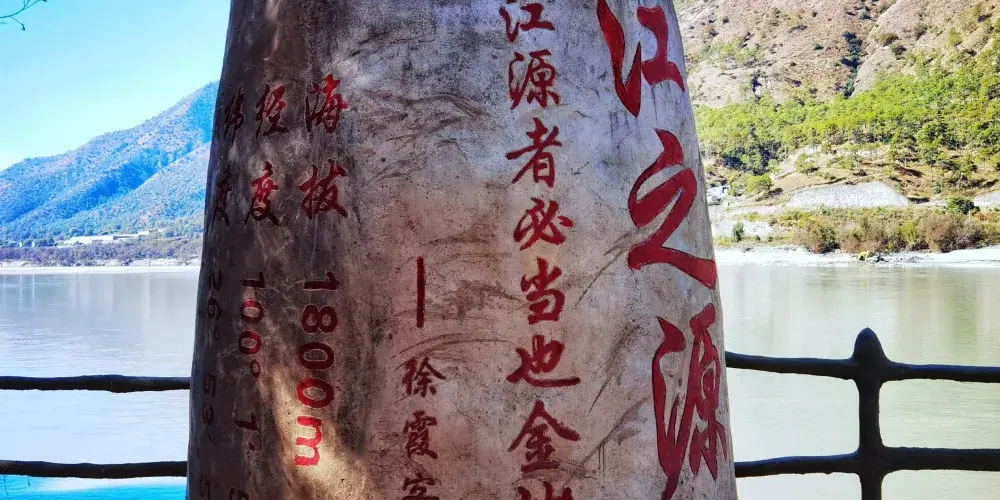 江之源
江源者必当也金
徐霞客
海拔 1800m
经度 100° 1'
纬度 26° 53'